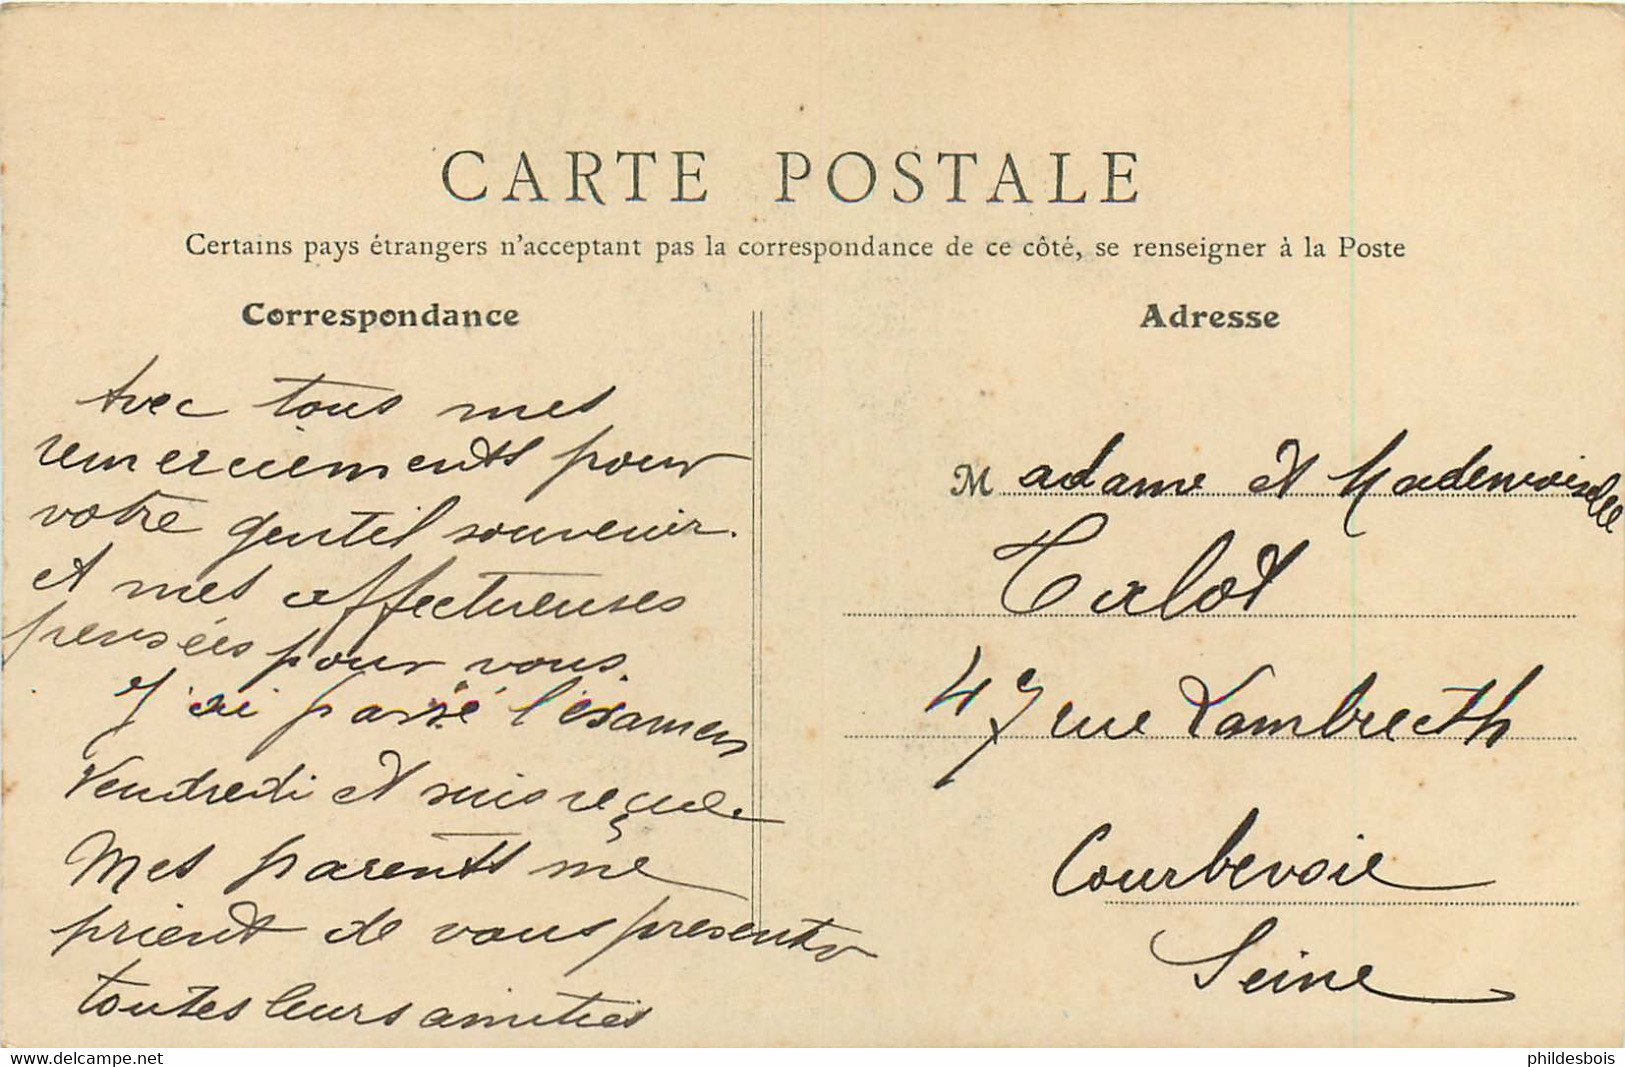 CARTE POSTALE
Certains pays étrangers n'acceptant pas la correspondance de ce côté, se renseigner à la Poste
Correspondance
Avec tous mes
remerciements pour
votre gentil souvenir.
et mes affectueuses
pensées pour vous.
J'ai passé l'examen
Vendredi et suis reçue.
Mes parents me
prient de vous présenter
toutes leurs amitiés
Adresse
Madame et Mademoiselle
Talot
47 rue Lambrecth
Courbevoie
Seine
www.delcampe.net
phildesbois